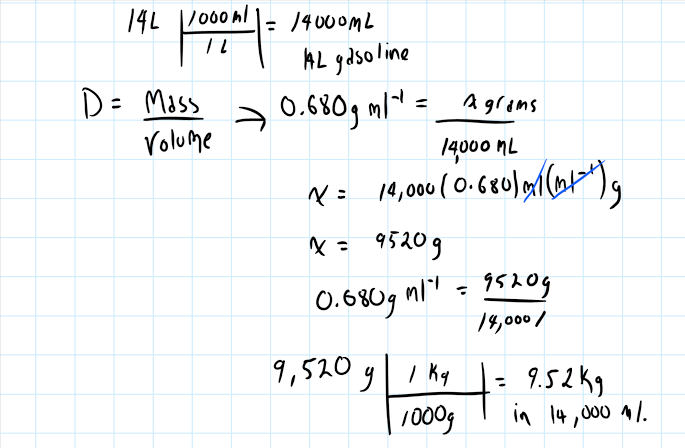 14L | 1000ml / 1L | = 14000mL
14L gasoline
D = Mass / Volume → 0.680g ml⁻¹ = x grams / 14,000 mL
x = 14,000(0.680)ml(ml⁻¹)g
x = 9520g
0.680g ml⁻¹ = 9520g / 14,000/
9,520 g | 1 Kg / 1000g | = 9.52kg
in 14,000 ml.